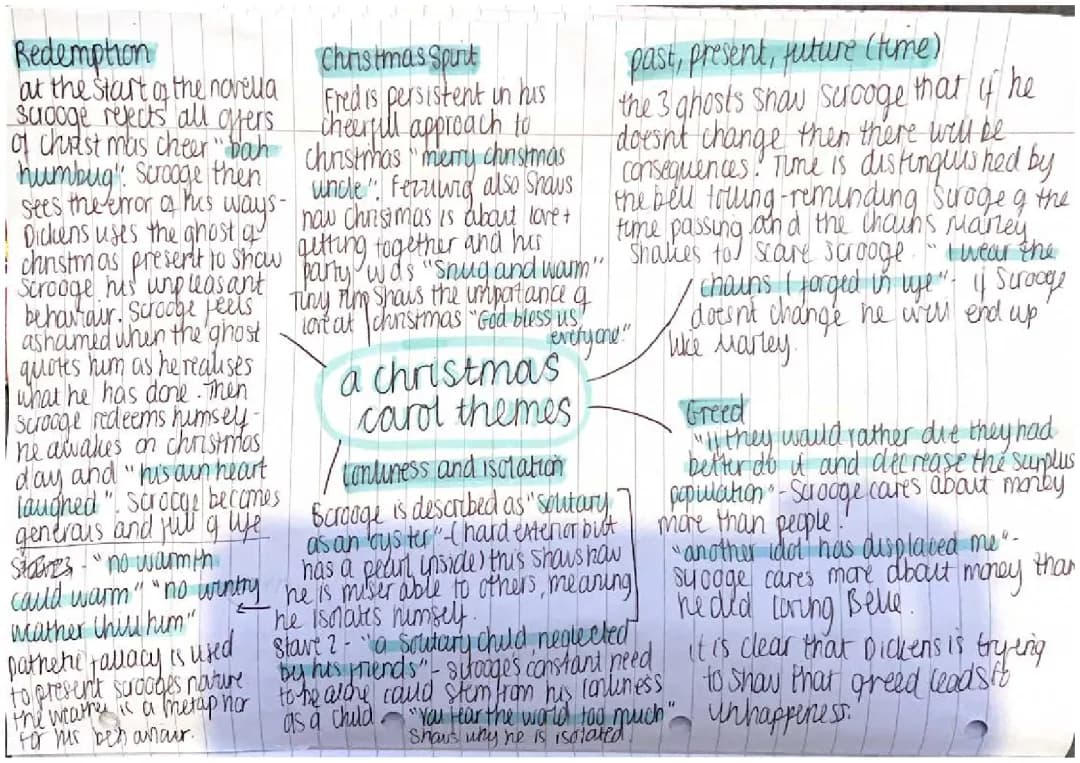 Redemption
at the start of the novella
scrooge rejects all offers
of christmas cheer "bah
humbug". Scrooge then
sees the error of his ways-
Dickens uses the ghost of
christmas present to show
scrooge his unpleasant
behaviour. Scrooge feels
ashamed when the ghost
quotes him as he realises
what he has done. Then
scrooge redeems himself-
he awakes on christmas
day and "his own heart
laughed". Scrooge becomes
generous and full of life
- "no warmth
could warm" "no wintry
weather chill him"
pathetic fallacy is used
to present scrooges nature
the weather is a metaphor
for his behaviour.
Christmas Spirit
Fred is persistent in his
cheerful approach to
christmas "merry christmas
uncle". also shows
how christmas is about love +
getting together and his
party was "snug and warm"
Tiny Tim shows the importance of
love at christmas "God bless us
everyone."
past, present, future (time)
the 3 ghosts show scrooge that if he
doesnt change then there will be
consequences. Time is distinguished by
the bell tolling-reminding scrooge of the
time passing and the chains Marley
shakes to scare scrooge. "I wear the
chains I forged in life" - if Scrooge
doesnt change he will end up
like Marley.
a christmas
carol themes
lonliness and isolation
Scrooge is described as "solitary
as an oyster"-(hard exterior but
has a pearl inside) this shows how
he is miserable to others, meaning
he isolates himself.
Stave 2 - "a solitary child, neglected
by his friends" - scrooges constant need
to be alone could stem from his lonliness
as a child "You fear the world too much"
shows why he is isolated.
Greed
"if they would rather die they had
better do it and decrease the surplus
population" - Scrooge cares about money
more than people.
"another idol has displaced me"-
scrooge cares more about money than
he did loving Belle.
it is clear that Dickens is trying
to show that greed leads to
unhappiness.